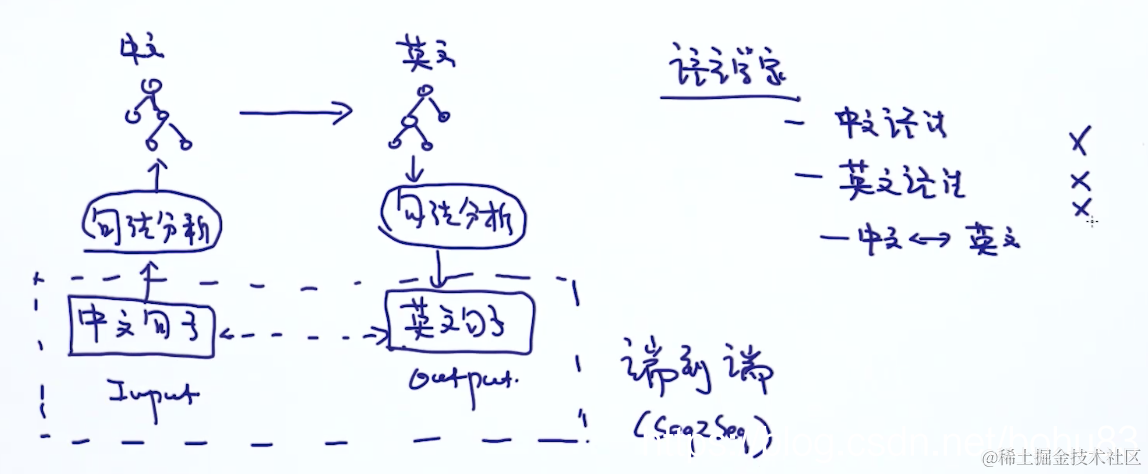 中文
英文
语言学家
- 中文语法 ×
- 英文语法 ×
- 中文 ↔ 英文 ×
句法分析
句法分析
中文句子
英文句子
Input
Output.
端到端
(Seq2Seq)
@稀土掘金技术社区